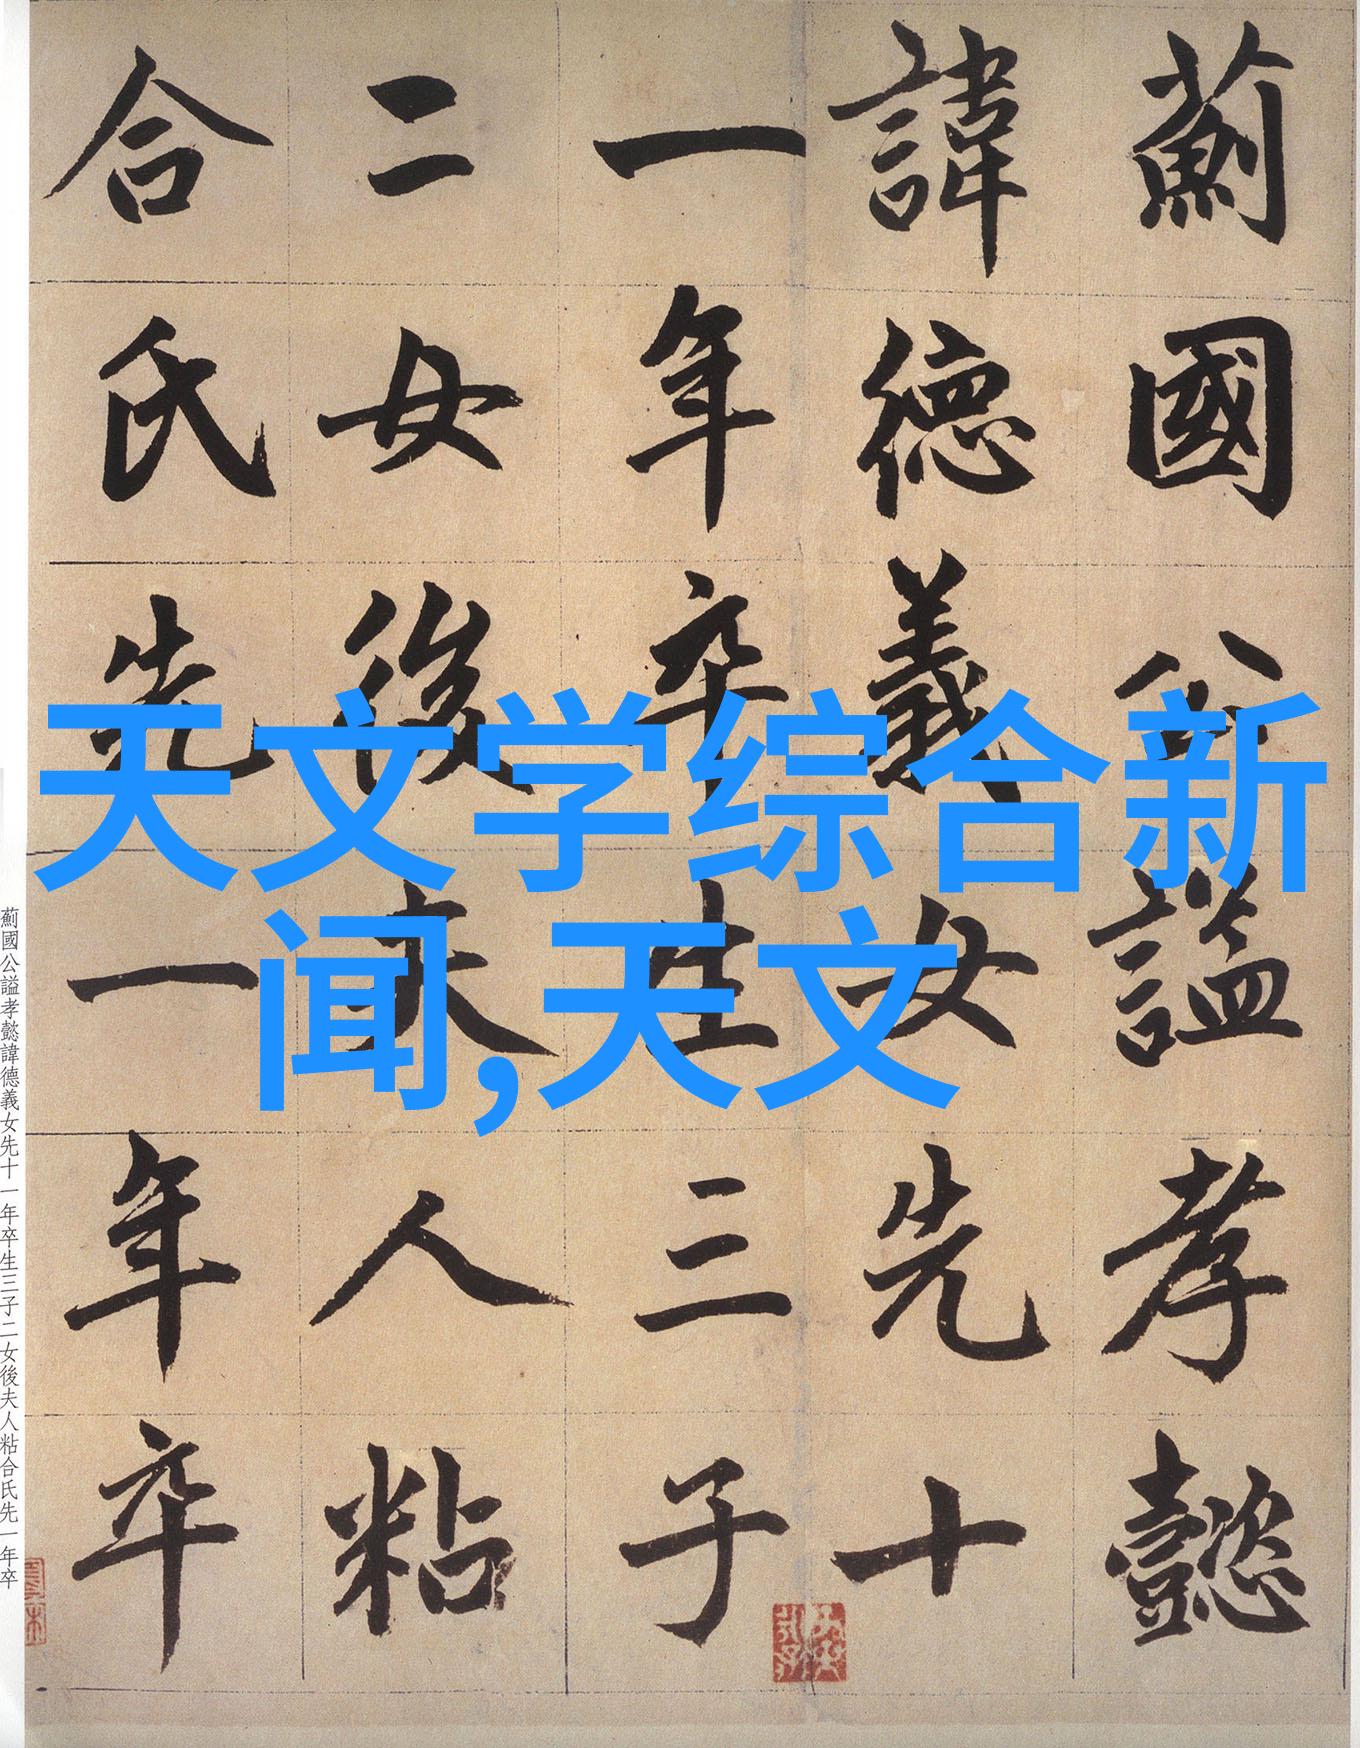 薊國公謚孝懿
諱德義女先十
一年卒生三子
二女後夫人粘
合氏先一年卒
天文学综合新
闻,天文
薊國公謚孝懿諱德義女先十一年卒生三子二女後夫人粘合氏先一年卒